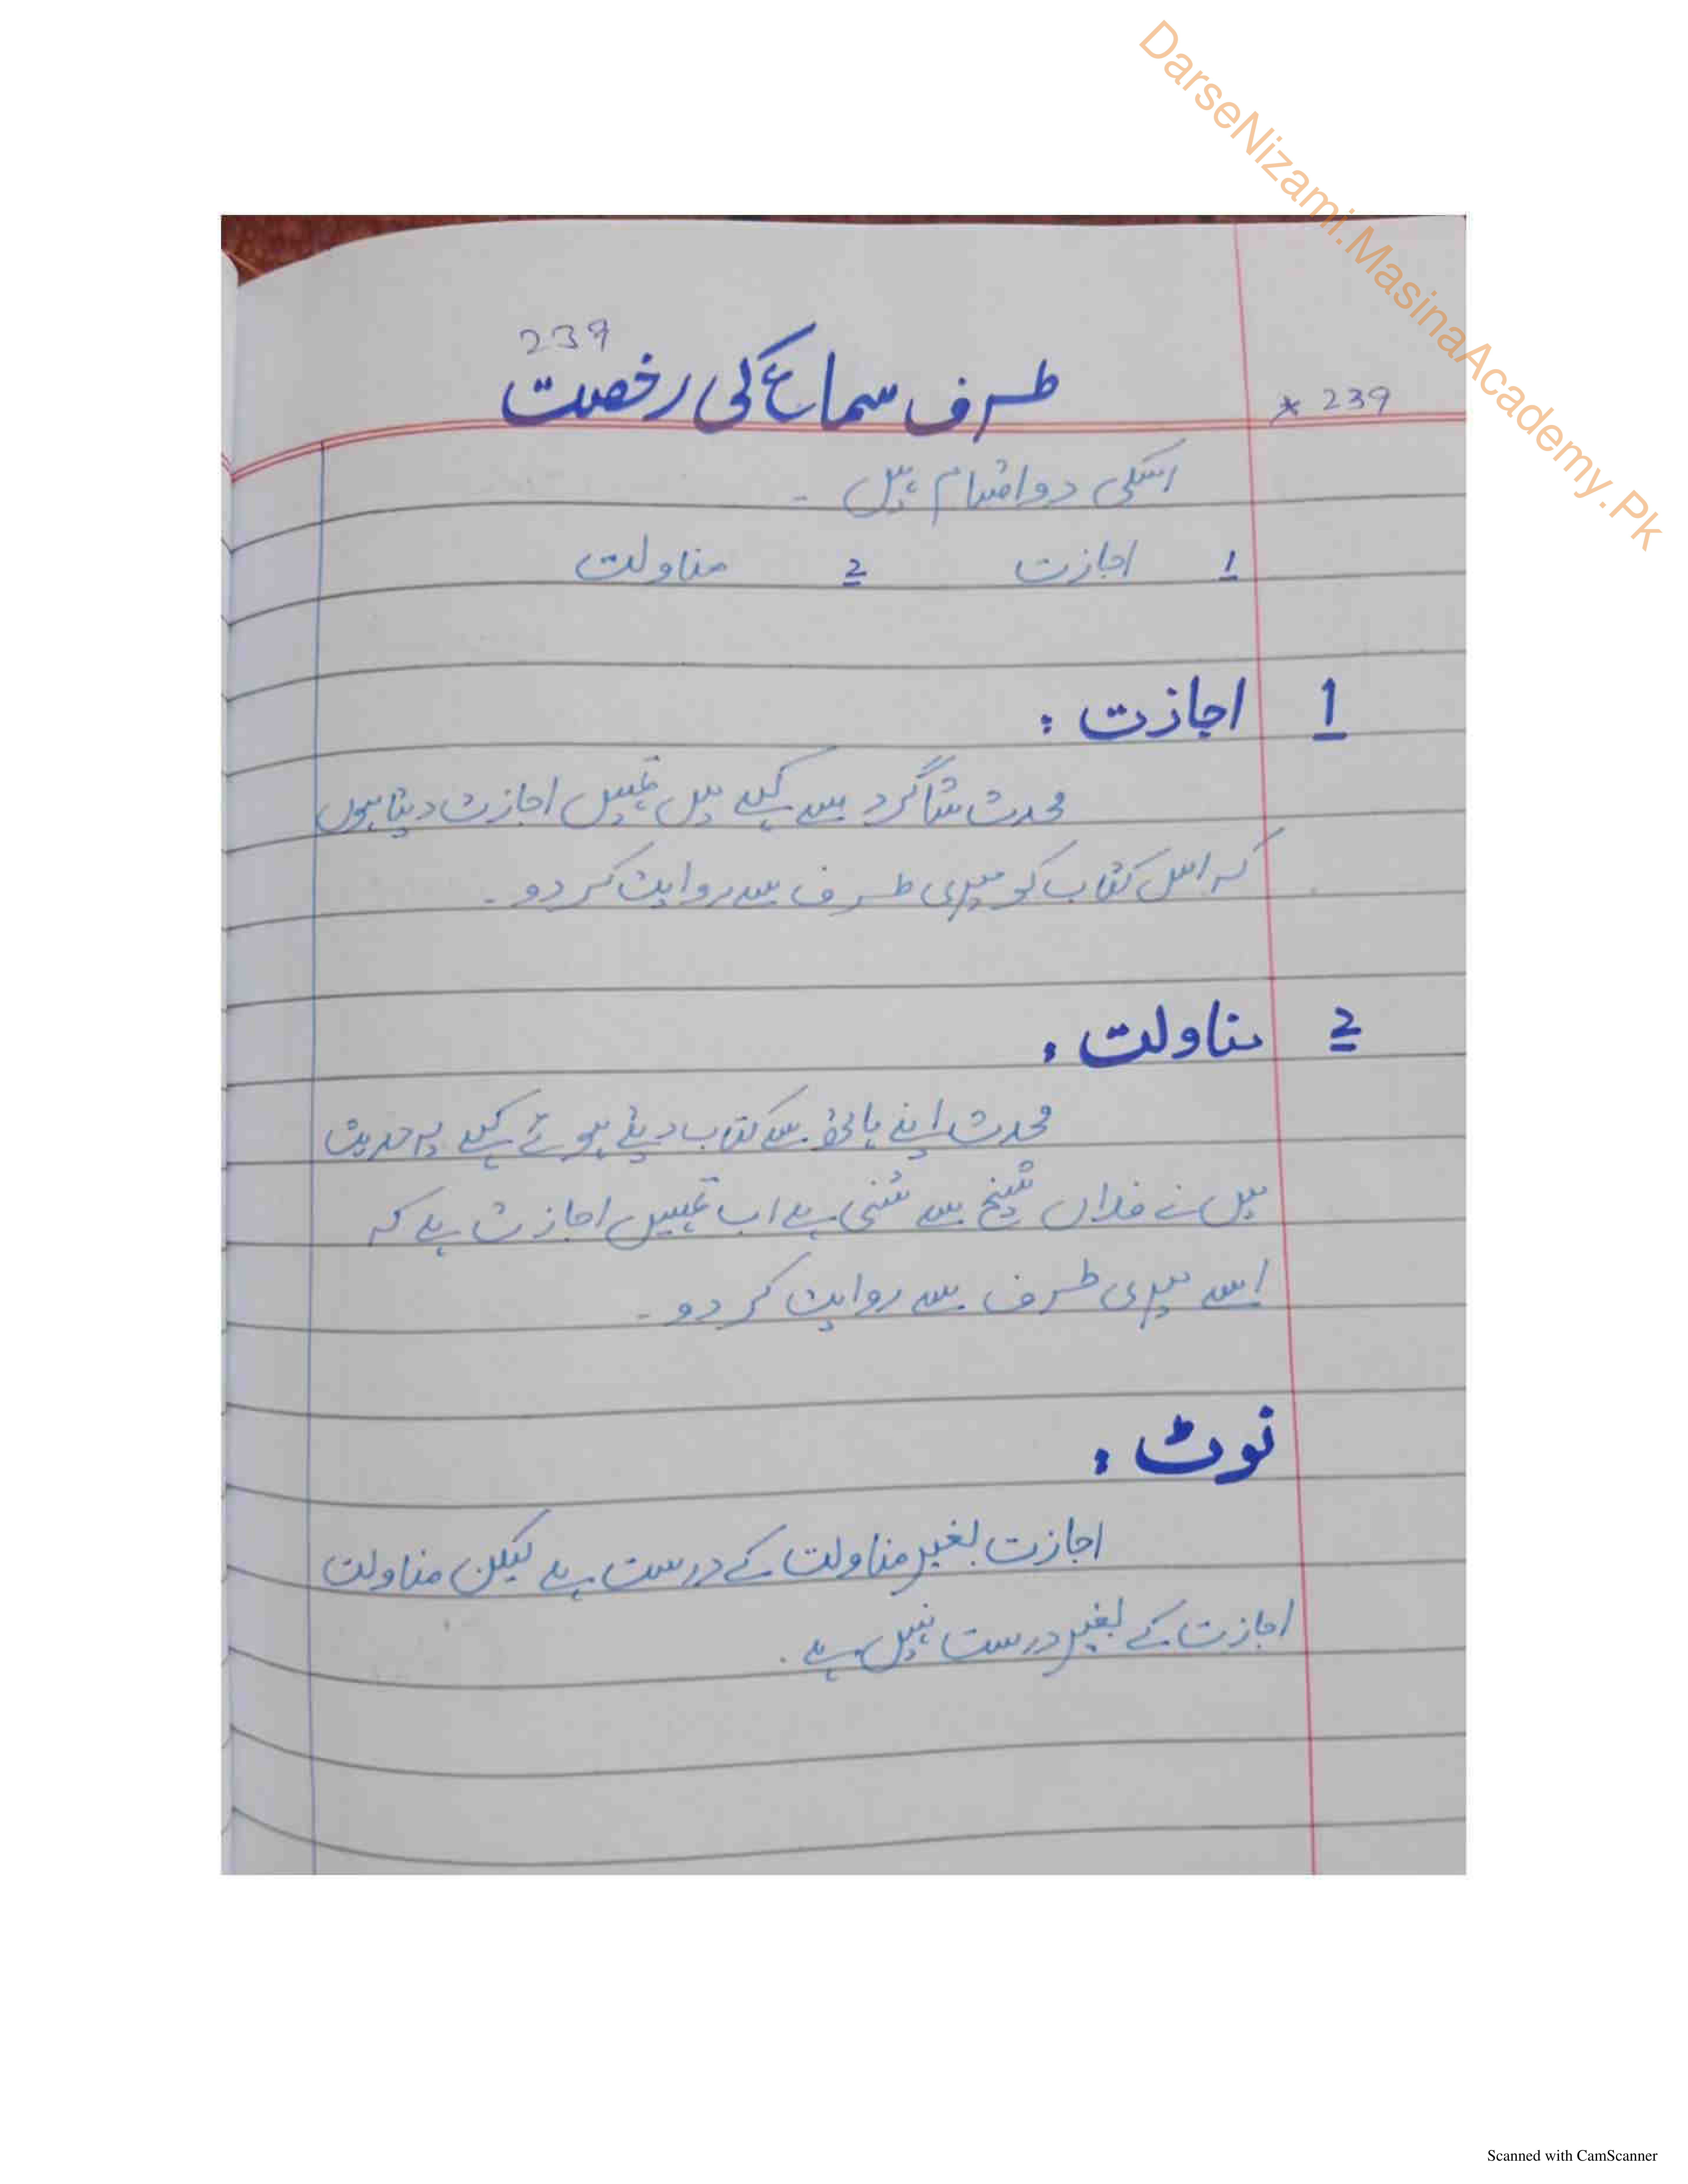 DarseNizami.MasinaAcademy.Pk
239
طرف سماع کی رخصت
* 239
اسکی دو اقسام ہیں ۔
1 اجازت 2 مناولت
1 اجازت :
محدث شاگرد سے کہے میں تمہیں اجازت دیتا ہوں
کہ اس کتاب کو میری طرف سے روایت کر دو ۔
2 مناولت :
محدث اپنے ہاتھ سے کتاب دیتے ہوئے کہے یہ حدیث
میں نے فلاں شیخ سے سُنی ہے اب تمہیں اجازت ہے کہ
اسے میری طرف سے روایت کر دو ۔
نوٹ :
اجازت بغیر مناولت کے درست ہے لیکن مناولت
اجازت کے بغیر درست نہیں ہے ۔
Scanned with CamScanner